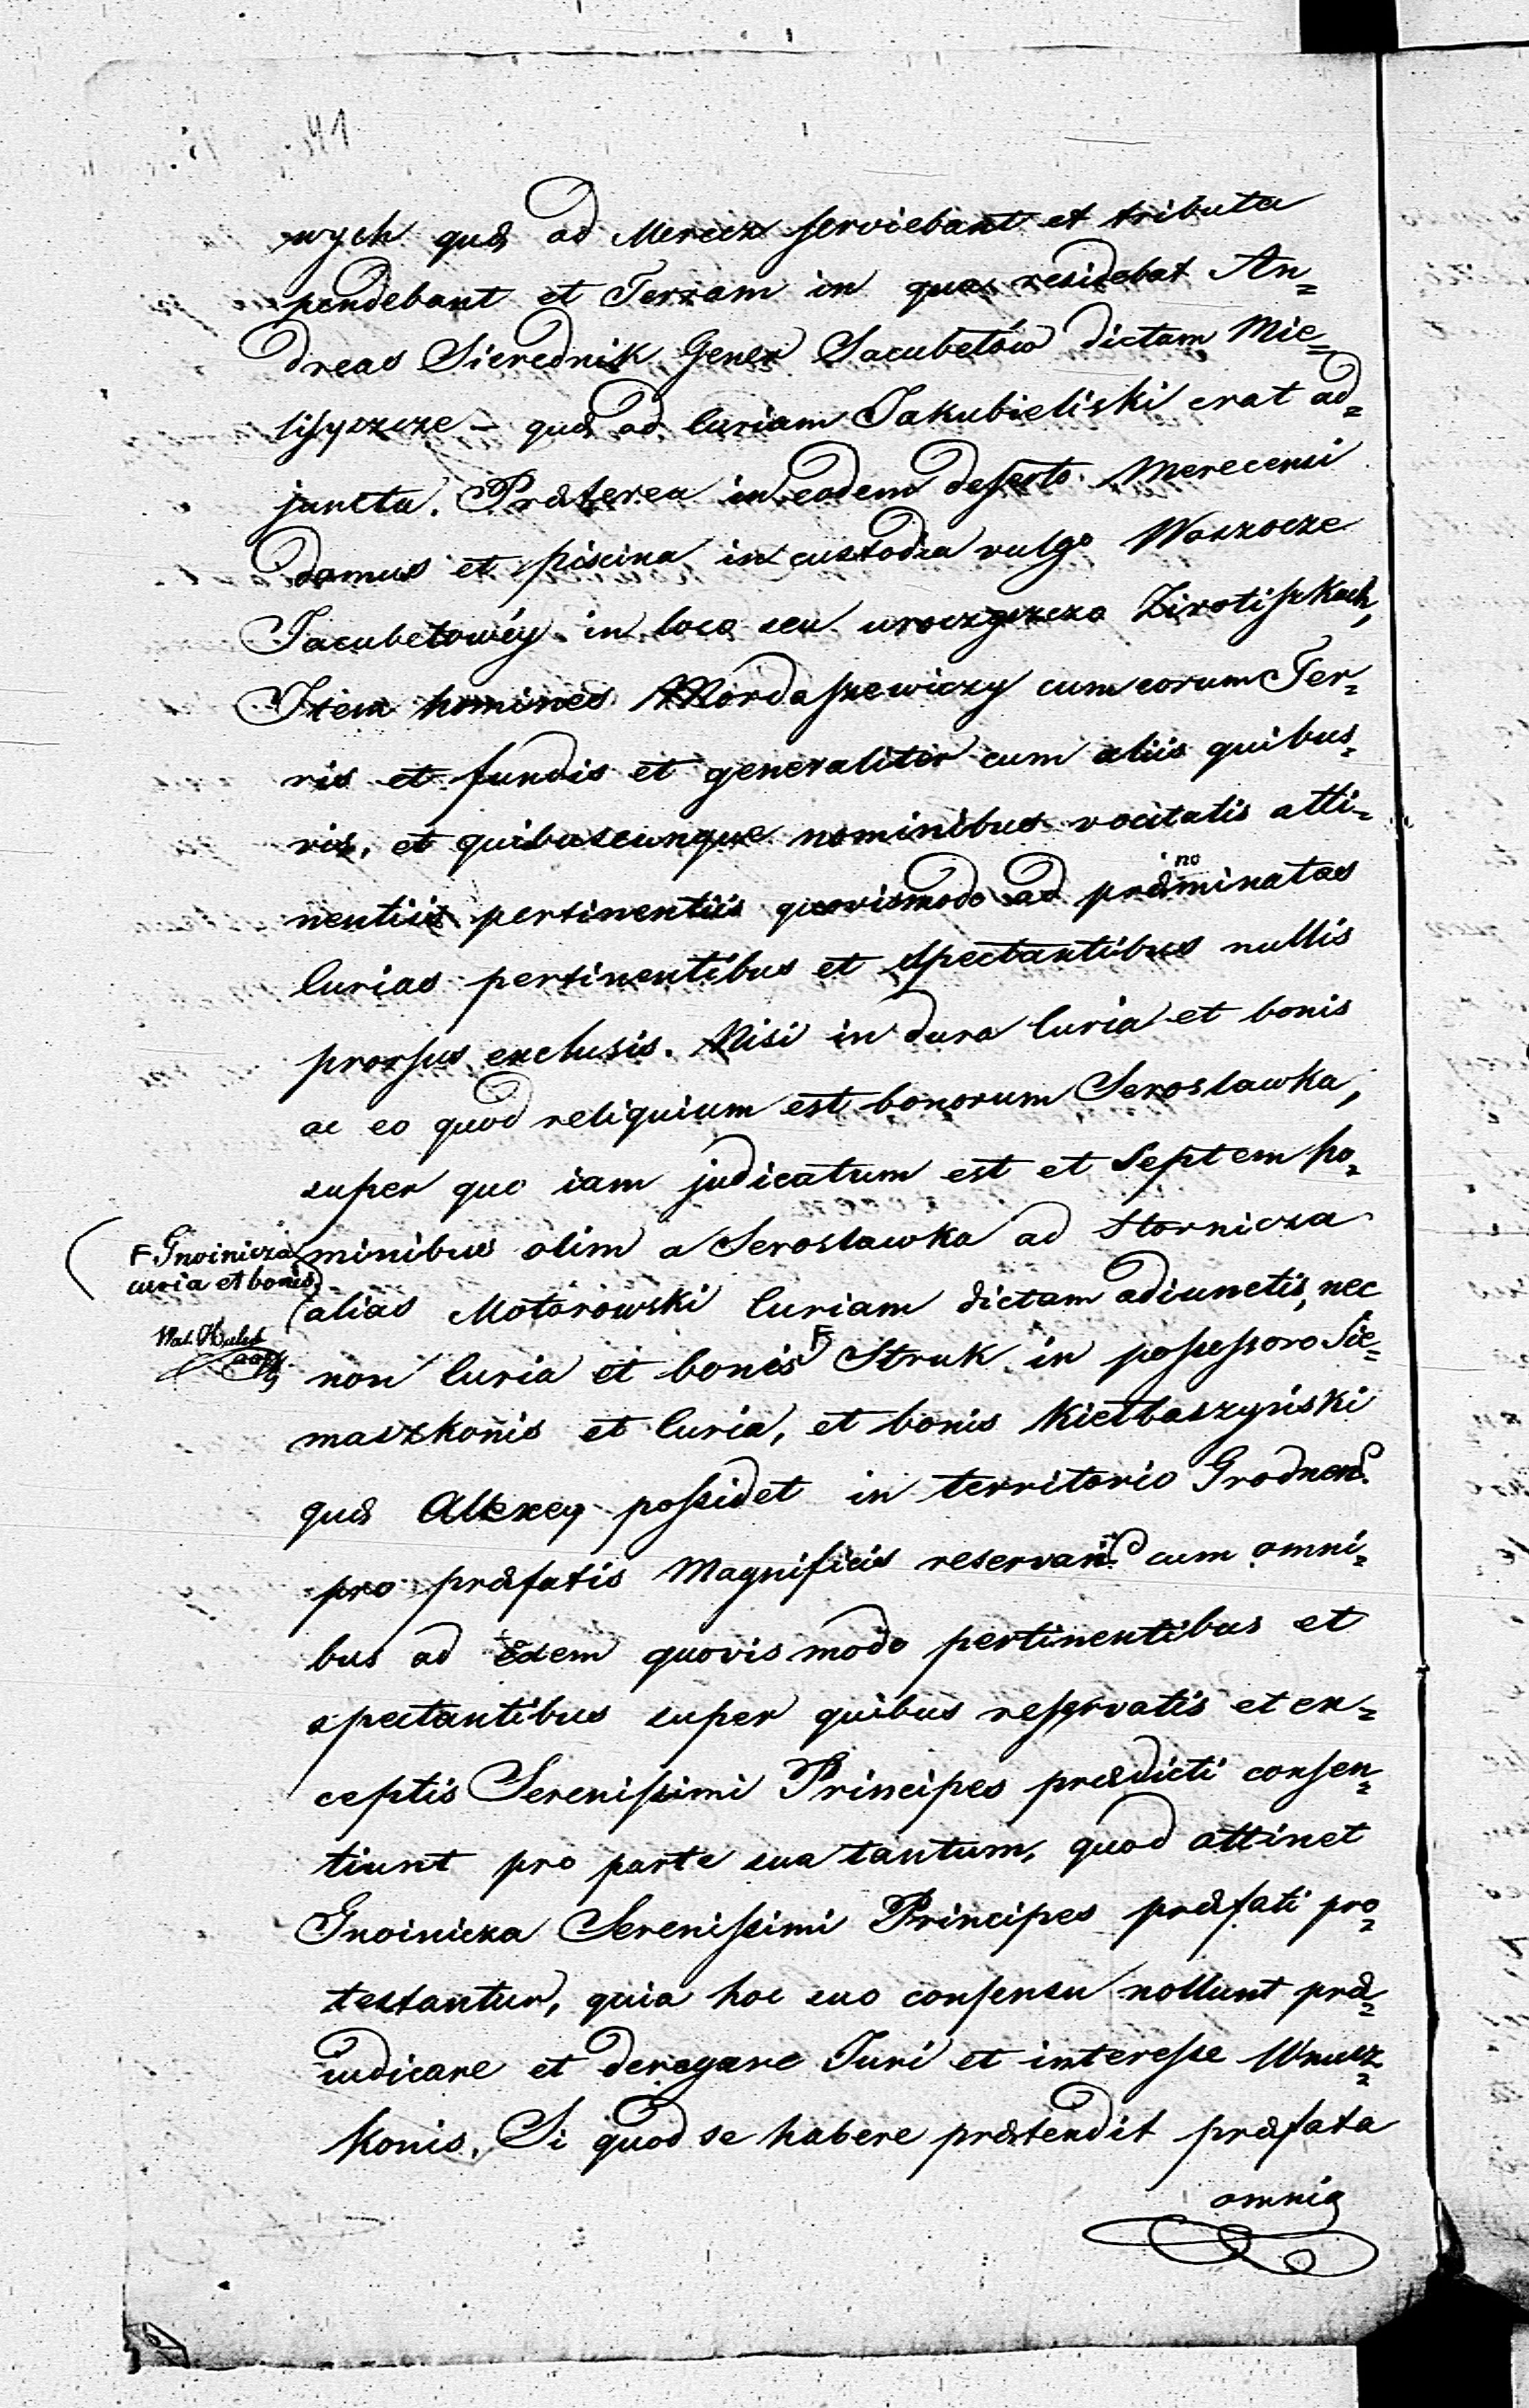 41
wych quæ ad Merecz serviebant et tributa
pendebant et Terram in qua residebat An=
dreas Sierednik Gener Jacubetów dictam Mie=
sisyszcze – quæ ad Curiam Jakubieliski erat ad=
juncta. Præterea in eodem deserto Merecensi
domus et piscina in custodia vulgo Waszocze
Jacubetowéy in loco seu uroczyszcza Zirotiszkach,
Item homines Mordaszewiczy cum eorum Ter=
ris et fundis et generaliter cum aliis quibus=
vis, et quibuscunque nominibus vocitatis atti=
nentiis pertinentiis quovismodo ad prænominatas
Curias pertinentibus et spectantibus nullis
prorsus exclusis. Nisi in dura Curia et bonis
ac eo quod reliquium est bonorum Serosławka,
super quo iam judicatum est et septem ho=
minibus olim a Serosławka ad Hornicza
alias Motorowski Curiam dictam adiunctis, nec
non Curia et bonis F Struk in possessoro Sie=
maszkonis et Curia, et bonis Kiełbaszyński
quæ Alexey possidet in territorio Grodnen.
pro præfatis Magnificis reservan. cum omni=
bus ad eadem quovis modo pertinentibus et
spectantibus super quibus reservatis et ex=
ceptis Serenissimi Principes prædicti consen=
tiunt pro parte sua tantum, quod attinet
Gnoinicza Serenissimi Principes præfati pro=
testantur, quia hoc suo consensu nollunt præ=
iudicare et derogare Juri et interesse Wnucz=
konis. Si quod se habere prætendit præfata
omnia
F Gnoinicza
curia et bonis